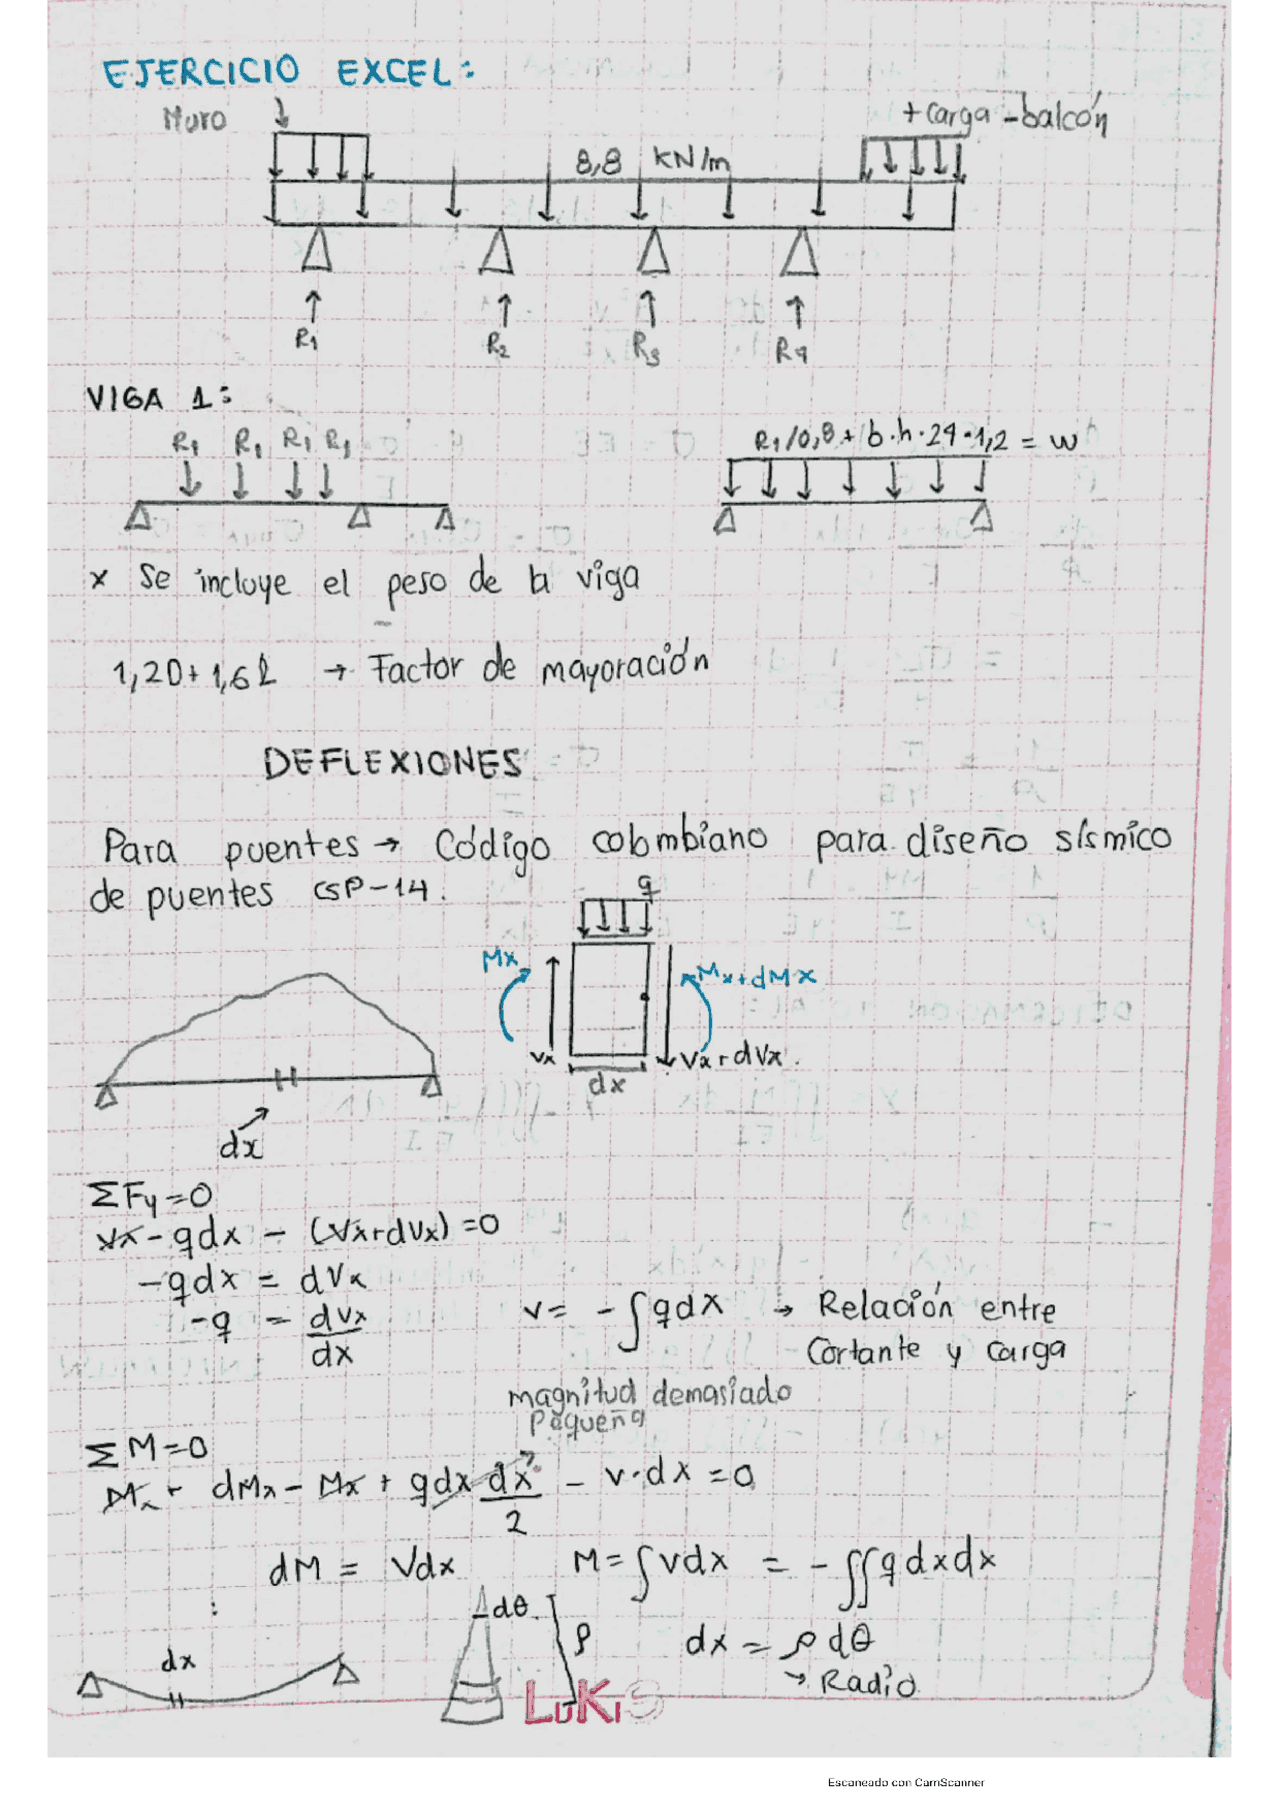 EJERCICIO EXCEL:
Muro
+ carga - balcón
8,8 kN/m
R1 R2 R3 R4
VIGA 1:
R1 R1 R1 R1
R1/0,8 + b·h·24·1,2 = w
x Se incluye el peso de la viga
1,2D + 1,6L → Factor de mayoración
DEFLEXIONES
Para puentes → Código colombiano para diseño sísmico
de puentes CSP-14.
q
Mx
Mx+dMx
Vx
Vx+dVx.
dx
dx
ΣFy=0
Vx - qdx - (Vx+dVx) =0
-qdx = dVx
-q = dVx/dx
V= -∫qdx → Relación entre
Cortante y carga
magnitud demasiado
pequeña
ΣM=0
Mx + dMx - Mx + qdx dx/2 - V·dx =0
dM = Vdx
M=∫Vdx = -∬qdxdx
dx
dθ.
ρ
dx = ρdθ
→ Radio
LuKiS
Escaneado con CamScanner